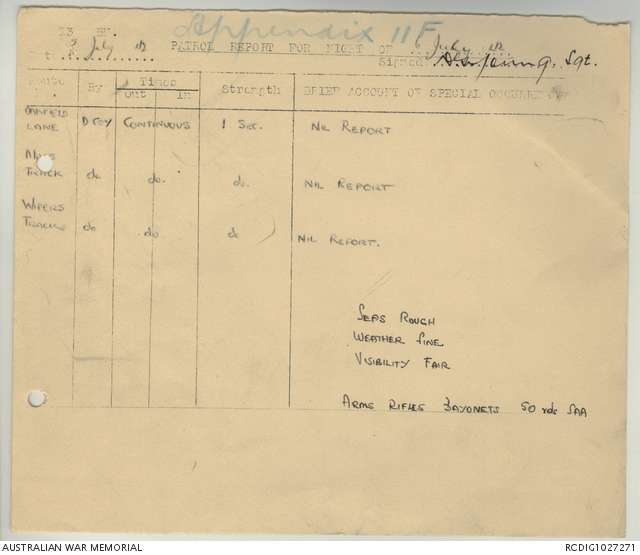 Appendix 11F
13 BN.
July PATROL REPORT FOR NIGHT OF July
Signed Sgt.
Route By Times Strength BRIEF ACCOUNT OF SPECIAL
Out In
LANE D COY CONTINUOUS 1 SEC. NIL REPORT
TRACK do do. do. NIL REPORT
WIPERS
TRACK do do do NIL REPORT.
SEAS ROUGH
WEATHER FINE
VISIBILITY FAIR
ARMS RIFLES BAYONETS 50 rds SAA
AUSTRALIAN WAR MEMORIAL RCDIG1027271